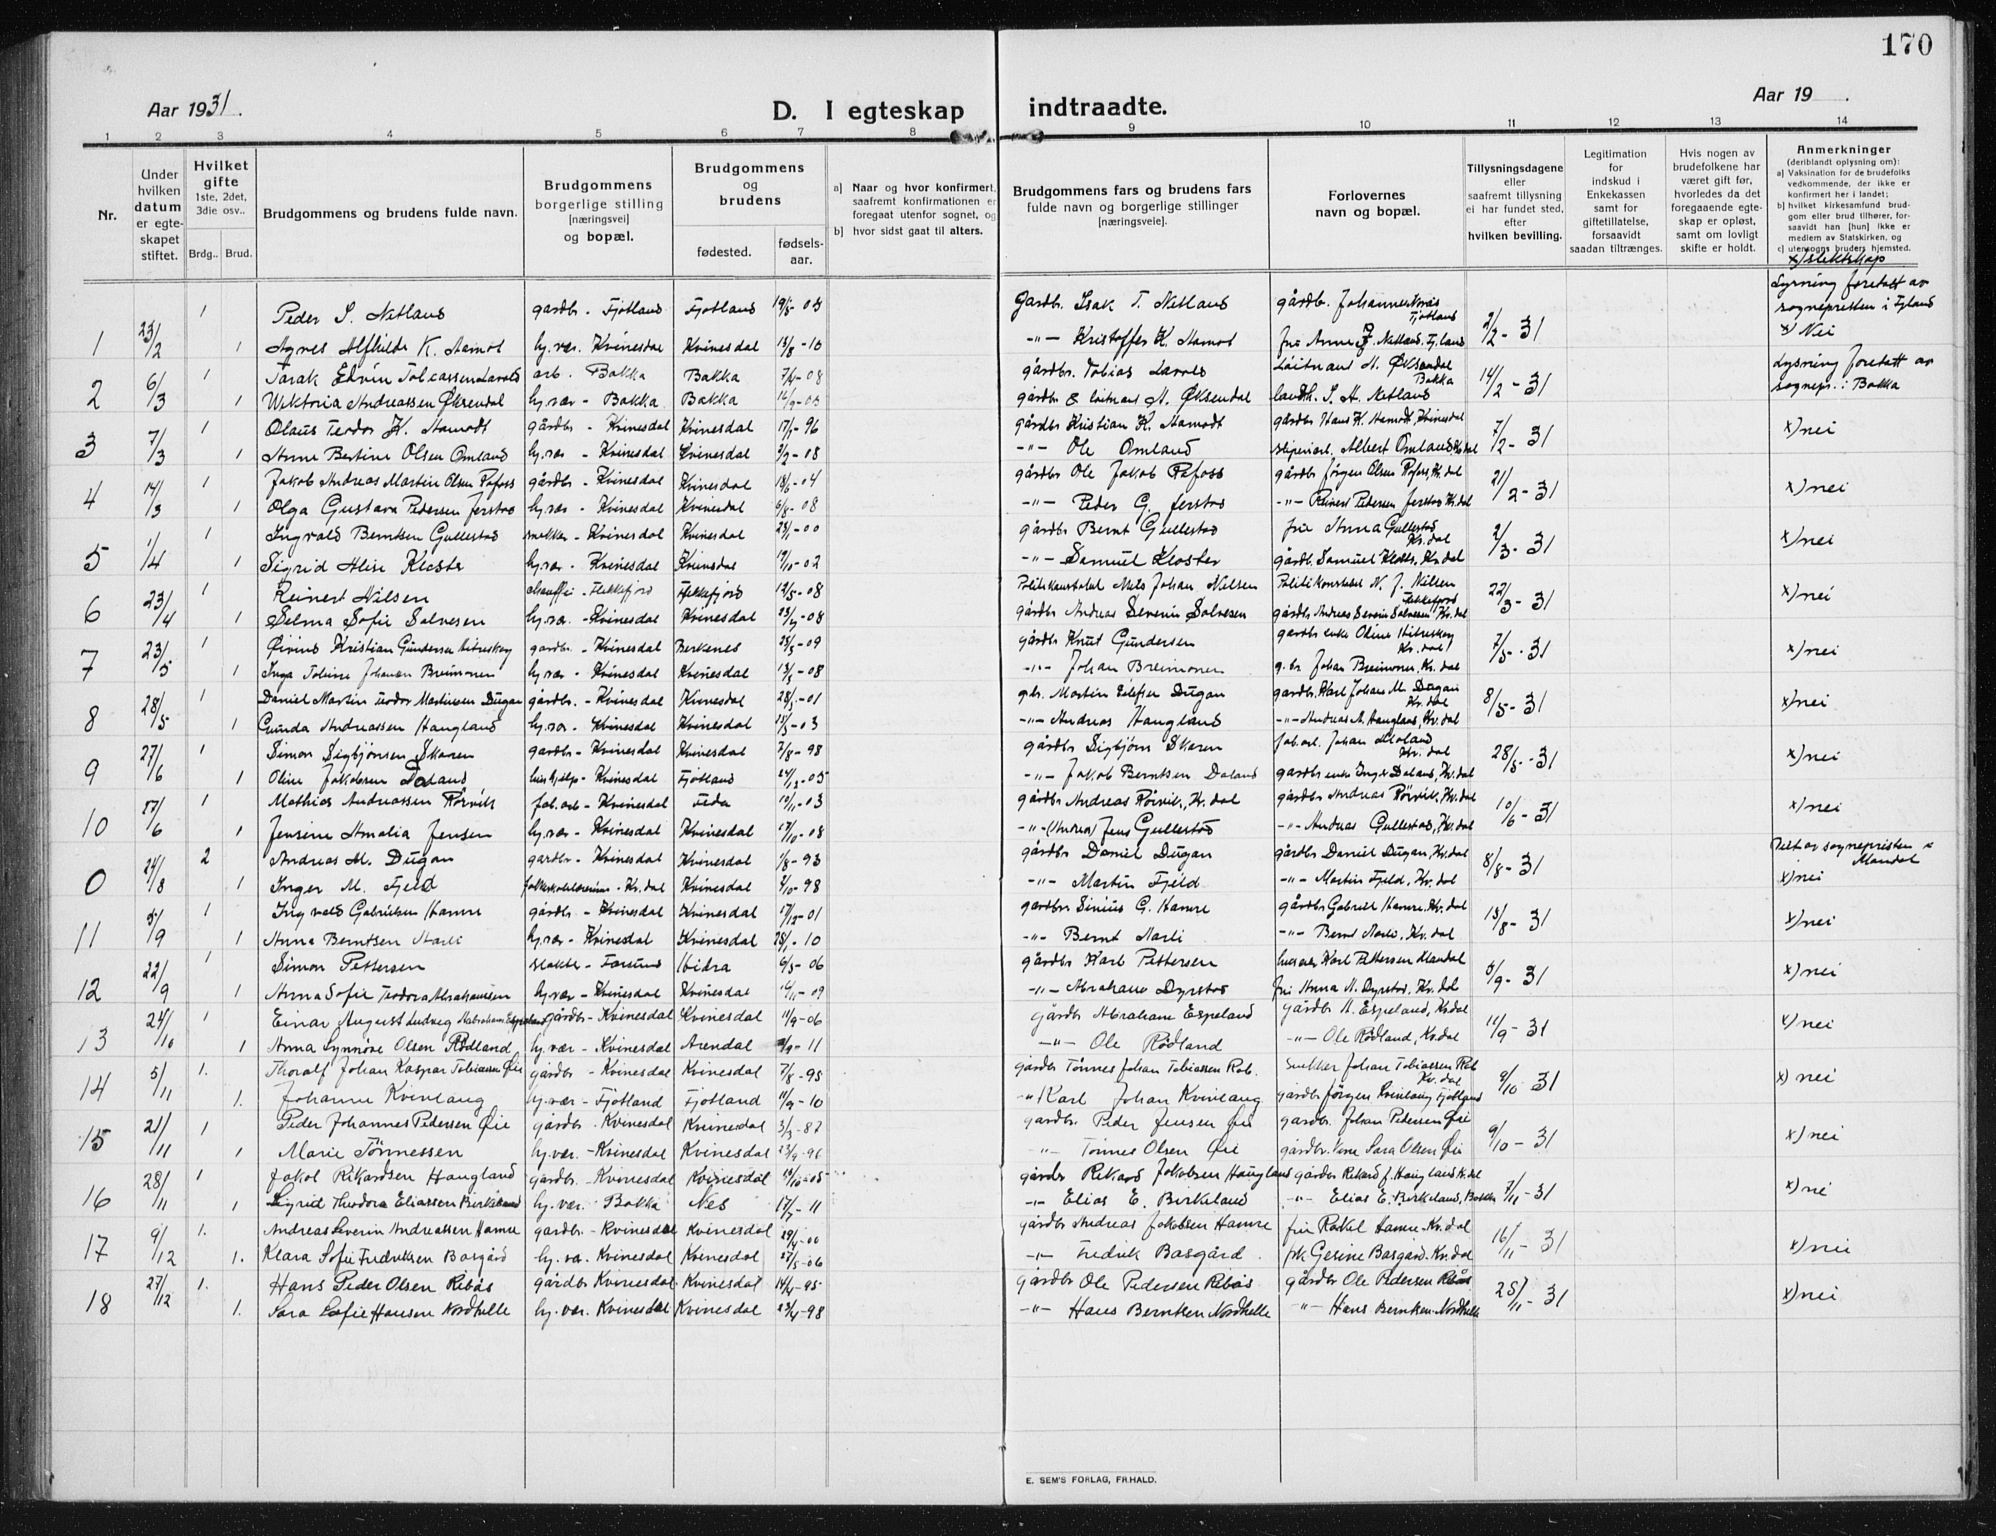 170
Aar 1931.
D. I egteskap indtraadte.
Aar 19 .
1 2 3 4 5 6 7 8 9 10 11 12 13 14
Nr.
Under hvilken datum er egteskapet stiftet.
Hvilket gifte 1ste, 2det, 3die osv..
Brdg.. Brud.
Brudgommens og brudens fulde navn.
Brudgommens borgerlige stilling [næringsvei] og bopæl.
Brudgommens og brudens
fødested. fødselsaar.
a) Naar og hvor konfirmert, saafremt konfirmationen er foregaat utenfor sognet, og
b) hvor sidst gaat til alters.
Brudgommens fars og brudens fars fulde navn og borgerlige stillinger [næringsveie].
Forlovernes navn og bopæl.
Tillysningsdagene eller saafremt tillysning ei har fundet sted, efter hvilken bevilling.
Legitimation for indskud i Enkekassen samt for giftetillatelse, forsaavidt saadan tiltrænges.
Hvis nogen av brudefolkene har været gift før, hvorledes da det foregaaende egteskap er opløst, samt om lovligt skifte er holdt.
Anmerkninger (deriblandt oplysning om):
a) Vaksination for de brudefolks vedkommende, der ikke er konfirmert her i landet;
b) hvilket kirkesamfund brudgom eller brud tilhører, forsaavidt han [hun] ikke er medlem av Statskirken, og
c) utensogns bruders hjemsted.
x) slektskap
1 23/2 1 Peder S. Netland gardbr. - Fjotland Fjotland 19/5-03 Gardbr. Isak T. Netland gårdb. Johannes Knås Fjotland 2/2-31 Lysning foretatt av sognepresten i Fjotland
1 Agnes Alfhilde K. Aamot hj.vær. Kvinesdal Kvinesdal 13/8-10 -"- Kristoffer K. Aamot fru Anne J. Netland, Fj.land x) Nei
2 6/3 1 Tarak Edvin Tobiassen Larvold arb. Bakka Bakka 7/4-08 gårdbr. Tobias Løitnant A. Øksendal Bakka 14/2-31 Lysning foretatt av sognepr. i Bakka
1 Wiktoria Andreassen Øksendal hj.vær - Bakka Bakka gårdbr & løitnant A. Øksendal landh. S. A. Netland
3 7/3 1 Olaus Teodor K. Aamodt gårdbr - Kvinesdal Kvinesdal 17/1-96 gårdbr Kristian K. Aamodt gårdbr Hans K. Aamodt, Kvinesdal 7/2-31 x) nei
1 Anne Bertine Olsen Omland hj.vær - Kvinesdal Kvinesdal 3/2-08 -"- Ole Omland sliperiarb. Albert Omland Kv.dal
4 14/3 1 Jakob Andreas Martin Olsen Rafoss gårdbr - Kvinesdal Kvinesdal 18/6-04 gårdbr Ole Jakob Rafoss gårdbr Jørgen Olsen Rafoss, Kv.dal 21/2-31 x) nei
1 Olga Gustava Pedersen Jerstad hj.vær - Kvinesdal Kvinesdal 6/8-08 -"- Peder G. Jerstad -"- Reinert Pedersen Jerstad Kv.dal
5 1/4 1 Ingvald Berntsen Gullestad snekker - Kvinesdal Kvinesdal 23/1-00 gårdbr Bernt Gullestad fru Anna Gullestad Kv.dal 2/3-31 x) nei
1 Sigrid Alise Kloster hj.vær. Kvinesdal Kvinesdal 19/10-02 -"- Samuel Kloster gårdb. Samuel Kloster, Kv.dal
6 23/4 1 Reinert Nilsen chauffør - Flekkefjord Flekkefjord 12/5-08 Politikonstabel Nils Johan Nilsen Politikonstabel N. J. Nilsen Flekkefjord 22/3-31 x) nei
1 Selma Sofie Salvesen hj.vær. - Kvinesdal Kvinesdal 23/7-08 gårdbr Andreas Severin Salvesen gårdbr Andreas Severin Salvesen Kv.dal
7 23/5 1 Øivind Kristian Gundersen gardbr. - Kvinesdal Berkenes 25/5-09 gårdbr Knut Gundersen gardbr enke Oline Kv.dal 7/5-31 x) nei
1 Inga Tobine Johansen Breimonen hj.vær - Kvinesdal Kvinesdal 13/5-08 -"- Johan Breimonen g.br Johan Breimonen, Kv.dal
8 28/5 1 Daniel Martin Teodor Martinsen Dugan gårdbr - Kvinesdal Kvinesdal 28/5-01 gbr. Martin Eilefsen Dugan gardbr Karl Johan M. Dugan Kv.dal 8/5-31 x) nei
1 Gunda Andreassen Haugland hj.vær. Kvinesdal Kvinesdal -03 -"- Andreas Haugland -"- Andreas A. Haugland, Kv.dal
9 27/6 1 Simon Sigbjørnsen Skaren gårdbr - Kvinesdal Kvinesdal 7/8-98 gårdbr Sigbjørn Skaren fab.arb. Johan Kv.dal 28/5-31 x) nei
1 Oline Jakobsen Daland hushjelp - Kvinesdal Fjotland 24/12-05 -"- Jakob Berntsen Daland gardbr enke Inger Daland, Kv.dal
10 27/6 1 Mathias Andreassen Rørvik fab.arb - Kvinesdal Feda 10/11-03 gårdbr Andreas Rørvik, Kv.dal gårdbr Andreas Rørvik, Kv.dal 10/6-31 x) nei
1 Jensine Amalia Jensen hj.vær - Kvinesdal Kvinesdal 17/10-08 -"- (Andrea) Jens Gullestad -"- Andreas Gullestad, Kv.dal
0 24/8 2 Andreas M. Dugan gardbr - Kvinesdal Kvinesdal -93 gårdbr Daniel Dugan gårdbr Daniel Dugan, Kv.dal 8/8-31 Viet av sognepresten i Mandal
1 Inger M. Fjeld - Kv.dal Kvinesdal -98 -"- Martin Fjeld -"- Martin Fjeld, Kv.dal x) nei
11 5/9 1 Ingvald Gabrielsen Hamre gårdbr - Kvinesdal Kvinesdal 17/12-01 gardbr Sinius G. Hamre gårdbr Gabriel Hamre, Kv.dal 13/8-31 x) nei
1 Anna Berntsen Aarli hj.vær - Kvinesdal Kvinesdal 28/1-10 -"- Bernt Aarli -"- Bernt Aarli, Kv.dal
12 22/9 1 Simon Pettersen slakter - Farsund Hidra 6/5-06 gårdbr Karl Pettersen Karl Pettersen Mandal 5/9-31 x) nei
1 Anna Sofie Teodora Abrahamsen hj.vær - Kvinesdal Kvinesdal 12/11-09 -"- Abraham Dyrstad fru Anna A. Dyrstad, Kv.dal
13 24/10 1 Einar August Ludvig Abrahamsen Espeland gårdbr - Kvinesdal Kvinesdal 11/9-06 Gårdbr Abraham Espeland Gårdbr A. Espeland, Kv.dal 11/9-31 x) nei
1 Anna Synnøve Olsen Rødland hj.vær. - Kvinesdal Arendal -11 -"- Ole Rødland -"- Ole Rødland, Kv.dal
14 5/11 1. Thoralf Johan Kaspar Tobiassen Øie gårdbr - Kvinesdal Kvinesdal 7/8-95 gårdbr Tønnes Johan Tobiassen Rob. Snekker Johan Tobiassen Rob Kv.dal 9/10-31 x) nei
1. Johanne Kvinlaug hj.vær. - Fjotland Fjotland 11/9-10 -"- Karl Johan Kvinlaug gårdbr Jørgen Kvinlaug Fjotland
15 21/11 1 Peder Johannes Pedersen Øie gårdbr. Kvinesdal Kvinesdal 3/3-87 gardbr. Peder Jensen Øie gardbr. Johan Pedersen Øie 9/10-31 x) nei
1 Marie Tønnessen hj.vær. - Kvinesdal Kvinesdal 23/4-96 -"- Tønnes Olsen Øie gårdbr. kone Sara Olsen Øie
16 28/11 1. Jakob Rikardsen Haugland gårdbr. - Kvinesdal Kvinesdal 19/10-05 gårdbr Rikard Jakobsen Haugland gårdbr Rikard J. Haugland Kv.dal 7/11-31 x) nei
1 Sigrid Theodora Eliassen Birkeland hj.vær. Bakka Nes 17/7-11 -"- Elias E. Birkeland -"- Elias E. Birkeland, Bakka
17 9/12 1. Andreas Severin Andreassen Hamre gardbr. - Kvinesdal Kvinesdal 29/4-00 gårdbr Andreas Jakobsen Hamre fru Rakel Hamre - Kv.dal 16/11-31 x) nei
1. Klara Sofie Fredriksen Basgård hj.væ. Kvinesdal Kvinesdal 27/5-06 -"- Fredrik Basgård. frk Gesine Basgård - Kv.dal
18 27/12 1. Hans Peder Olsen Rebås gårdbr Kvinesdal Kvinesdal 14/4-95 gårdbr Ole Pedersen Rebås gårdbr Ole Pedersen Rebås 25/11-31 x) nei
1. Sara Sofie Hansen Nordhelle hj.vær. Kvinesdal Kvinesdal 23/4-98 -"- Hans Berntsen Nordhelle -"- Hans Berntsen Nordhelle
E. SEM'S FORLAG, FR.HALD.